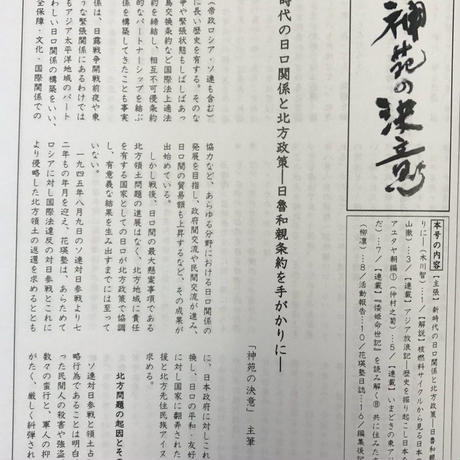 神苑の決意
本号の内容【主張】新時代の日ロ関係と北方政策―日魯和親
りに―（木川智）…1／【解説】核燃料サイクルから見る日本
山徹）…3／【連載】アジア放浪記―歴史を掘り起こし日本
アユタヤ朝編①（仲村之菊）…5／【連載】いまどきの東ア
だ）…7／【連載】『倭姫命世記』を読み解く⑱ 共に住みた
（柳凛）…8／活動報告…10／花瑛塾日誌…16／編集後記
時代の日ロ関係と北方政策―日魯和親条約を手がかりに―
「神苑の決意」主筆
（帝政ロシア・ソ連も含む）
に長い歴史を有する。そのな
争や緊張状態もしばしばあっ
島交換条約など国際法上適法
約を締結し、相互不可侵条約
的なパートナーシップを結ぶ
係を構築してきたことも事実
係は、日露戦争開戦前夜や東
な緊張関係にあるわけでは
もアジア太平洋地域のパート
わしい日ロ関係の構築をいい、
全保障・文化・国際関係での
協力など、あらゆる分野における日ロ関係の
発展を目指し、政府間交流や民間交流が進み、
日ロ間の貿易額も上昇するなど、その成果が
出始めている。
しかし戦後、日ロ間の最大懸案事項である
北方領土問題の進展はなく、北方地域に責任
を有する国家としての日ロが北方政策で協調
し、有意義な結果を生み出すまでには至って
いない。
一九四五年八月九日のソ連対日参戦より七
二年もの年月を迎え、花瑛塾は、あらためて
ロシアに対し国際法違反の対日参戦とこれに
より侵略した北方領土の返還を求めるととも
に、日本政府に対しこれ
換し、日ロの平和・友好
に対し国家に翻弄された
援と北方先住民族アイヌ
求める。
北方問題の起因とそ
ソ連対日参戦と領土占
略行為であることは明白
った民間人の殺害や強盗
数々の蛮行と、軍人の抑
がたく、厳しく糾弾され